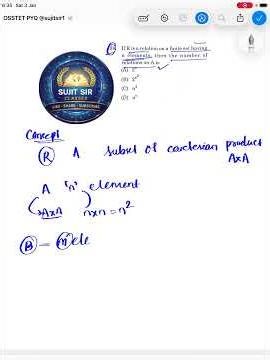 6:35 Sat 3 Jan
OSSTET PYQ @sujitsir1
If R is a relation on a finite set having
n elements, then the number of
relations on A is
(A) 2ⁿ
(B)
(C) n²
(D) nⁿ
SUJIT SIR
CLASSES
LIKE - SHARE - SUBSCRIBE
Concept
R A subset of cartesian product
A×A
A 'n' element
A×A n×n = n²
B - m ele